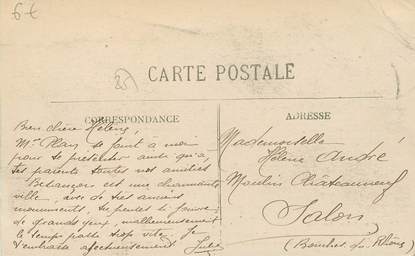 6€
85
CARTE POSTALE
CORRESPONDANCE
ADRESSE
Bien chère Hélène,
Mr Plan se joint à moi
pour se présenter ainsi qu'à
tes parents toutes nos amitiés
Besançon est une charmante
ville, avec de ses anciens
monuments,
de grands yeux malheureusement
le temps passe trop vite. Je
t'embrasse affectueusement
Mademoiselle
Hélène André
Moulin Châteauneuf
Salon
(Bouches du Rhône)